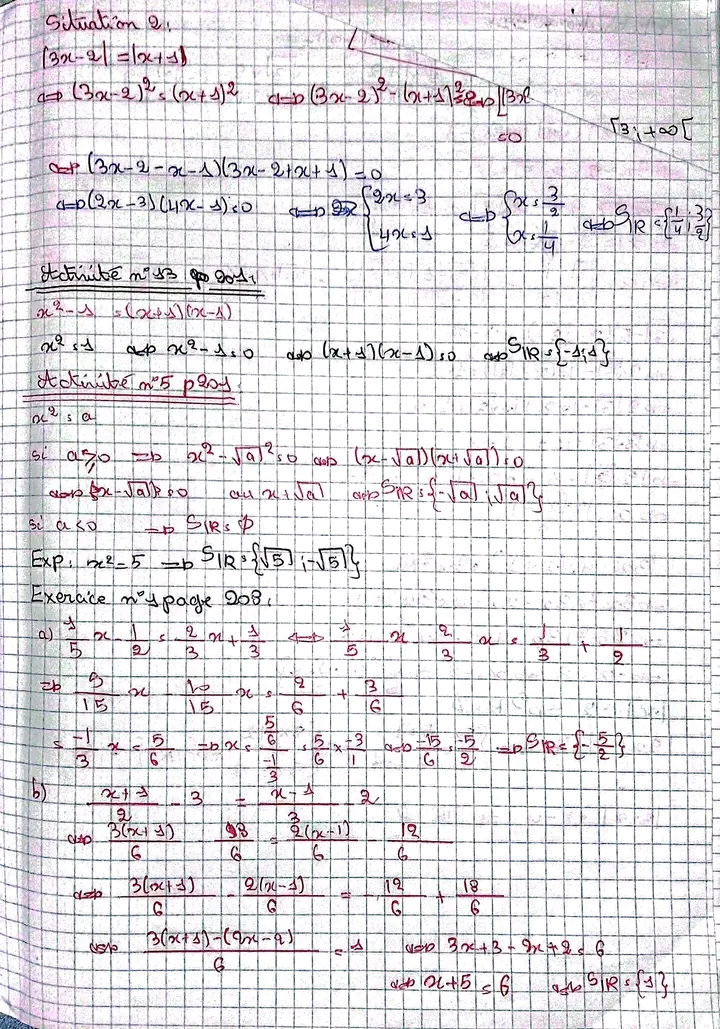 Situation 2:
|3x-2| = |x+1|
⇔ (3x-2)² = (x+1)² ⇔ (3x-2)² - (x+1)² = 0 ⇔ [(3x
=0
[3; +∞[
⇔ (3x-2-x-1)(3x-2+x+1) = 0
⇔ (2x-3)(4x-1) = 0 ⇔ { 2x=3 4x=1 ⇔ { x = 3/2 x = 1/4 ⇔ SIR = {1/4; 3/2}
Activité n°13 p 201:
x²-1 = (x+1)(x-1)
x² = 1 ⇔ x²-1 = 0 ⇔ (x+1)(x-1) = 0 ⇔ SIR = {-1; 1}
Activité n°5 p201:
x² = a
si a ≥ 0 ⇒ x² - √a² = 0 ⇔ (x-√a)(x+√a) = 0
⇔ (x-√a) = 0 ou x+√a ⇔ SIR = {-√a; √a}
si a < 0 ⇒ SIR = ∅
Exp: x² = 5 ⇒ SIR = {√5; -√5}
Exercice n°1 page 208:
a) 1/5 x - 1/2 = 2/3 x + 1/3 ⇔ 1/5 x - 2/3 x = 1/3 + 1/2
⇒ 3/15 x - 10/15 x = 2/6 + 3/6
= -1/3 x = 5/6 ⇒ x = 5/6 / -1/3 = 5/6 × -3/1 ⇔ -15/6 = -5/2 ⇒ SIR = {-5/2}
b) x+1/2 - 3 = x-1/3 - 2
⇔ 3(x+1)/6 - 18/6 = 2(x-1)/6 - 12/6
⇔ 3(x+1)/6 - 2(x-1)/6 = -12/6 + 18/6
⇔ 3(x+1)-(2x-2)/6 = 1 ⇔ 3x+3-2x+2 = 6
⇔ x+5 = 6 ⇔ SIR = {1}